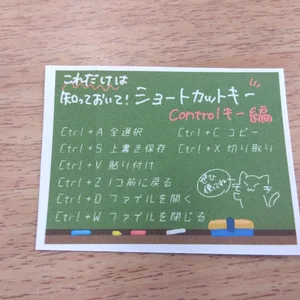 これだけは
知っておいて！ショートカットキー
Controlキー編
Ctrl+A 全選択
Ctrl+S 上書き保存
Ctrl+V 貼り付け
Ctrl+Z 1コ前に戻る
Ctrl+O ファイルを開く
Ctrl+W ファイルを閉じる
Ctrl+C コピー
Ctrl+X 切り取り
ぜひ
使ってね